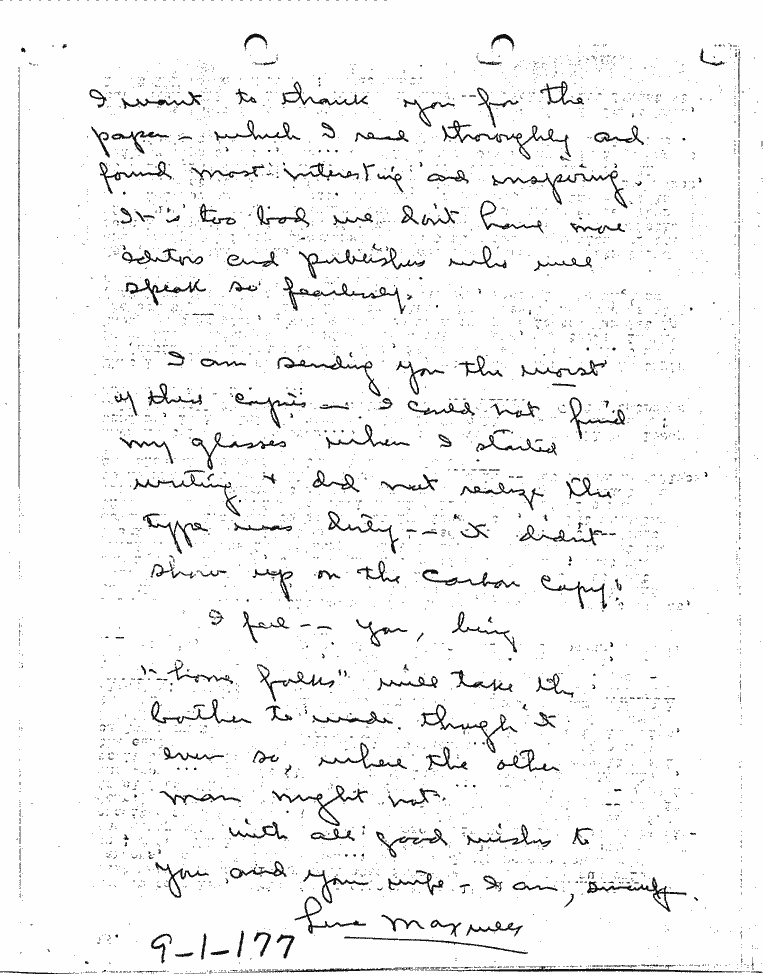 I want to thank you for the
paper - which I read thoroughly and
found most interesting and inspiring.
It is too bad we don't have more
editors and publishers who will
speak so fearlessly.
I am sending you the worst
of these copies - I could not find
my glasses when I started
writing & did not realize the
type was dirty -- it didn't
show up on the carbon copy!
I feel -- you, being
"home folks" will take the
bother to wade through it
even so, where the other
man might not.
With all good wishes to
you and your wife - I am, sincerely.
Maxwell
9-1-177